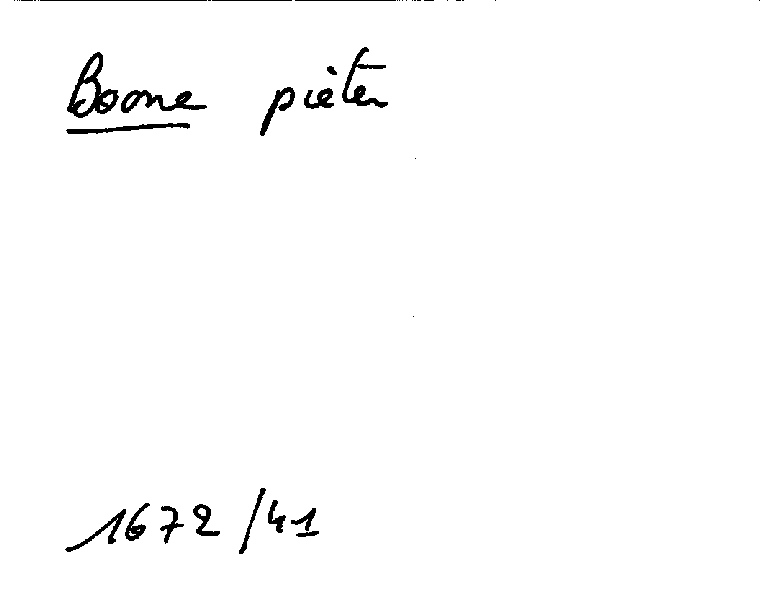 Boone pieter
1672/41